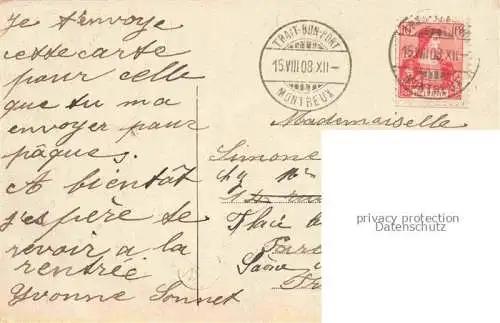 Je t'envoye
cette carte
pour celle
que tu ma
envoyer pour
pâques.
A bientôt
j'espère se
revoir a la
rentrée
Yvonne Sonnet
TRAIT-BON-PORT
15.VIII 08.XII-
MONTREUX
15 VIII 08.XII-
Mademoiselle
Simone
Place
Saône
privacy protection
Datenschutz